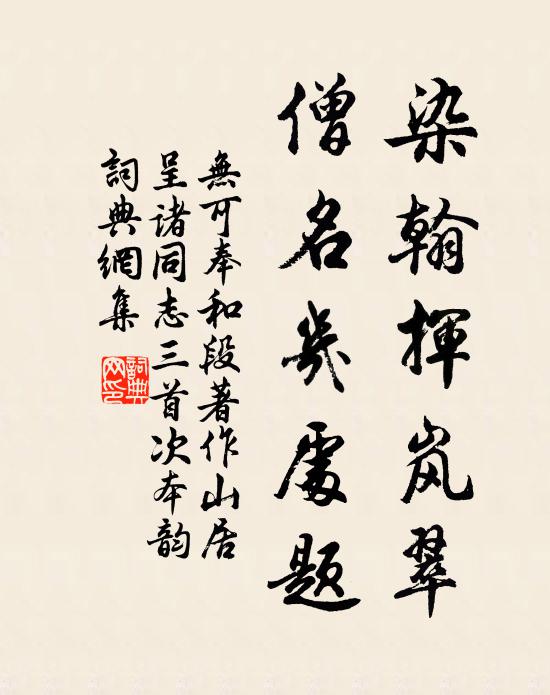 染翰揮岚翠
僧名幾處題
無可奉和段著作山居
呈诸同志三首次本韵
詞典網集
詞典
网印